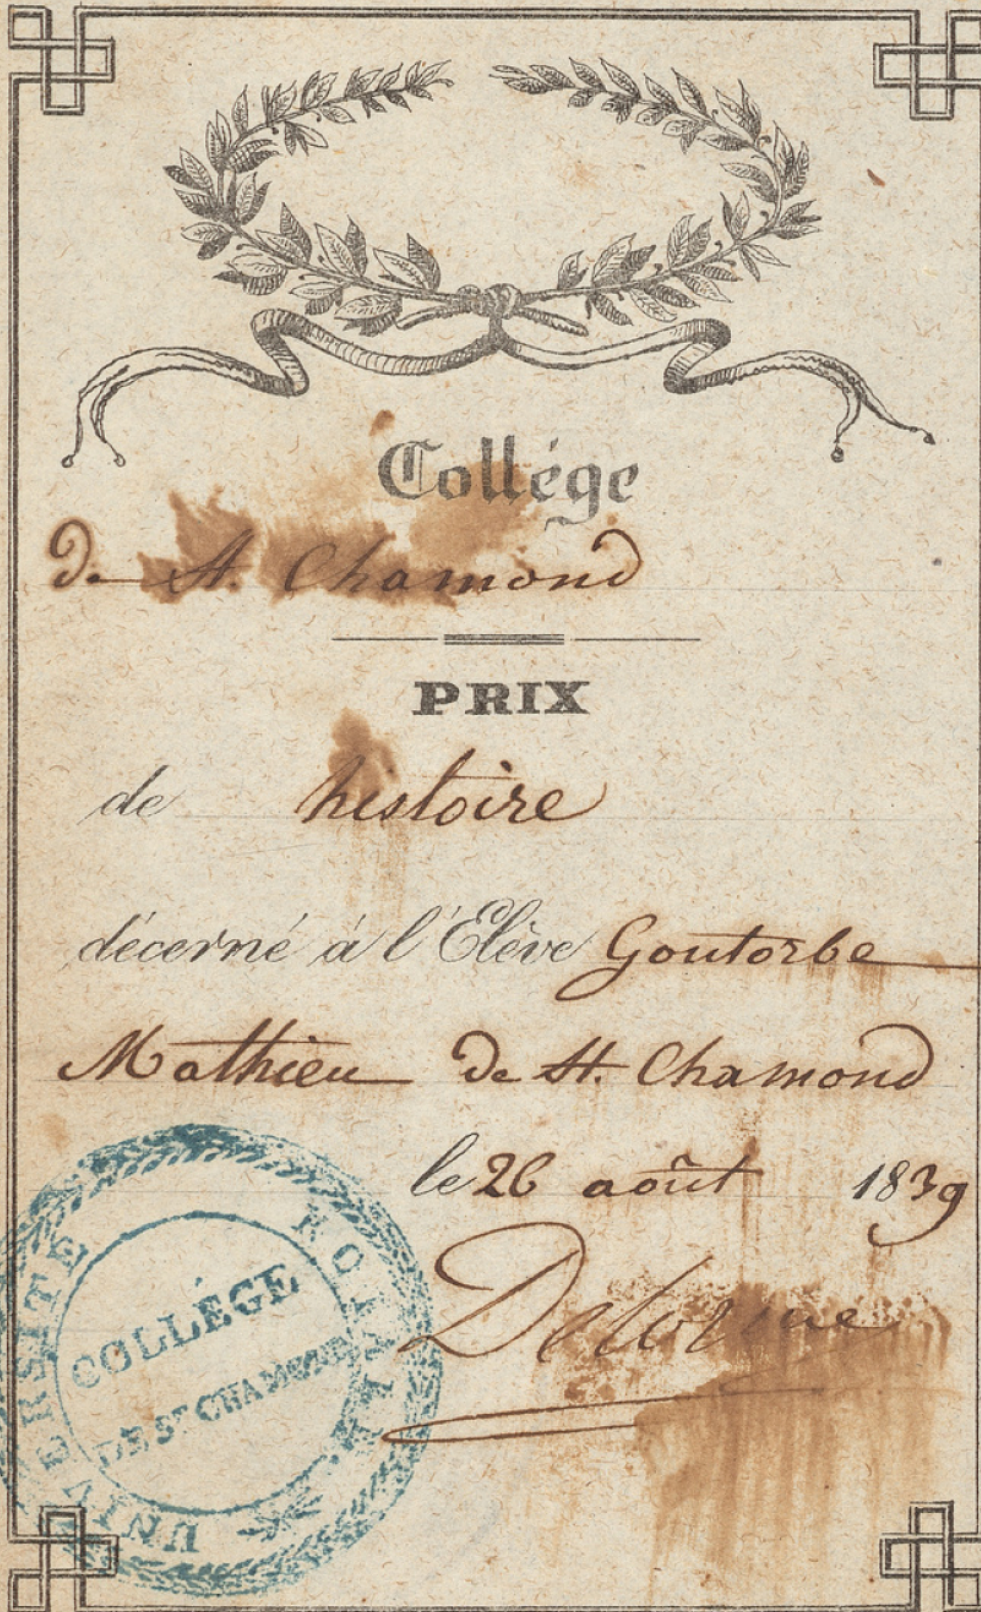 Collége
de St. Chamond
PRIX
de histoire
décerné à l'Élève Goutorbe
Mathieu de St. Chamond
le 26 août 1839
Delorme
UNIVERSITÉ
COLLÉGE
DE ST CHAMOND